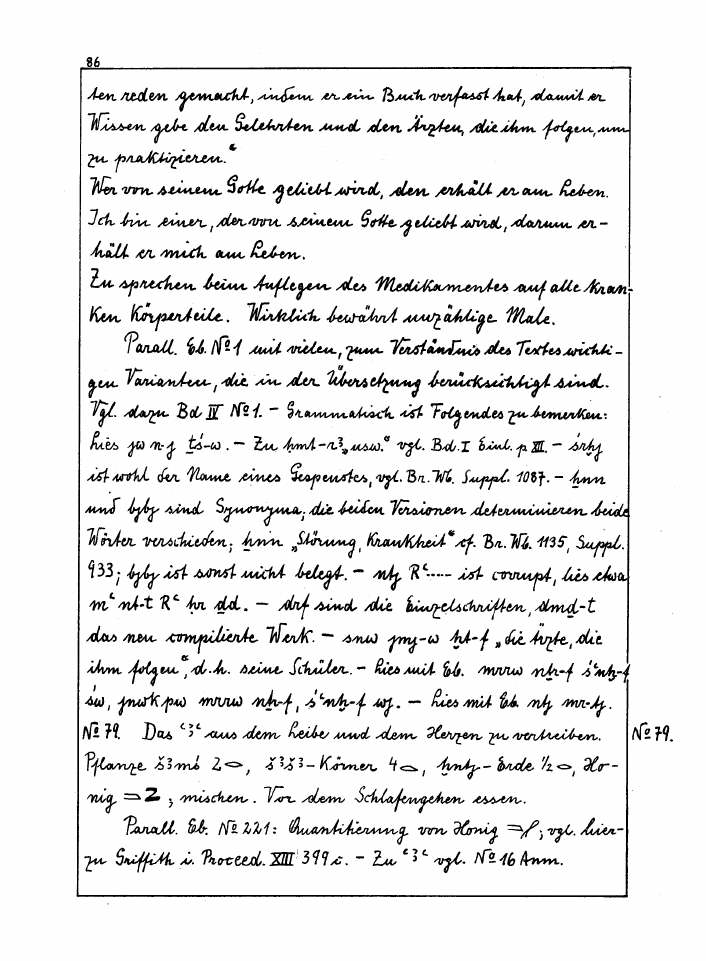 86
ten reden gemacht, indem er ein Buch verfasst hat, damit er
Wissen gebe den Gelehrten und den Ärzten, die ihm folgen, um
zu praktizieren.“
Wer von seinem Gotte geliebt wird, den erhält er am Leben.
Ich bin einer, der von seinem Gotte geliebt wird, darum er-
hält er mich am Leben.
Zu sprechen beim Auflegen des Medikamentes auf alle kran-
ken Körperteile. Wirklich bewährt unzählige Male.
Parall. Eb. № 1 mit vielen, zum Verständnis des Textes wichti-
gen Varianten, die in der Übersetzung berücksichtigt sind.
Vgl. dazu Bd IV № 1. – Grammatisch ist Folgendes zu bemerken:
Lies jw n-j ṯś-w. – Zu ḥmt-rꜣ „usw.“ vgl. Bd. I Einl. p XII. – śrḫj
ist wohl der Name eines Gespenstes, vgl. Br. Wb. Suppl. 1087. – ẖnn
und bjbj sind Synonyma; die beiden Versionen determinieren beide
Wörter verschieden; ẖnn „Störung, Krankheit“ cf. Br. Wb. 1135, Suppl.
933; bjbj ist sonst nicht belegt. – ntj Rꜥ..... ist corrupt, lies etwa
mꜥ nt-t Rꜥ ḥr ḏd. – drf sind die Einzelschriften, dmḏ-t
das neu compilierte Werk. – snw jmj-w ḫt-f „die Ärzte, die
ihm folgen“, d. h. seine Schüler. – Lies mit Eb. mrrw nṯr-f śꜥnḫ-f
św, jnwk pw mrrw nṯr-f, śꜥnḫ-f wj. – Lies mit Eb. ntj mr-tj.
№ 79. Das ꜥꜣꜥ aus dem Leibe und dem Herzen zu vertreiben. № 79.
Pflanze šꜣmś 2, šꜣšꜣ-Körner 4, ḥntj-Erde ½, Ho-
nig; mischen. Vor dem Schlafengehen essen.
Parall. Eb. № 221: Quantitierung von Honig; vgl. hier-
zu Griffith i. Proceed. XIII 399 c. – Zu ꜥꜣꜥ vgl. № 16 Anm.